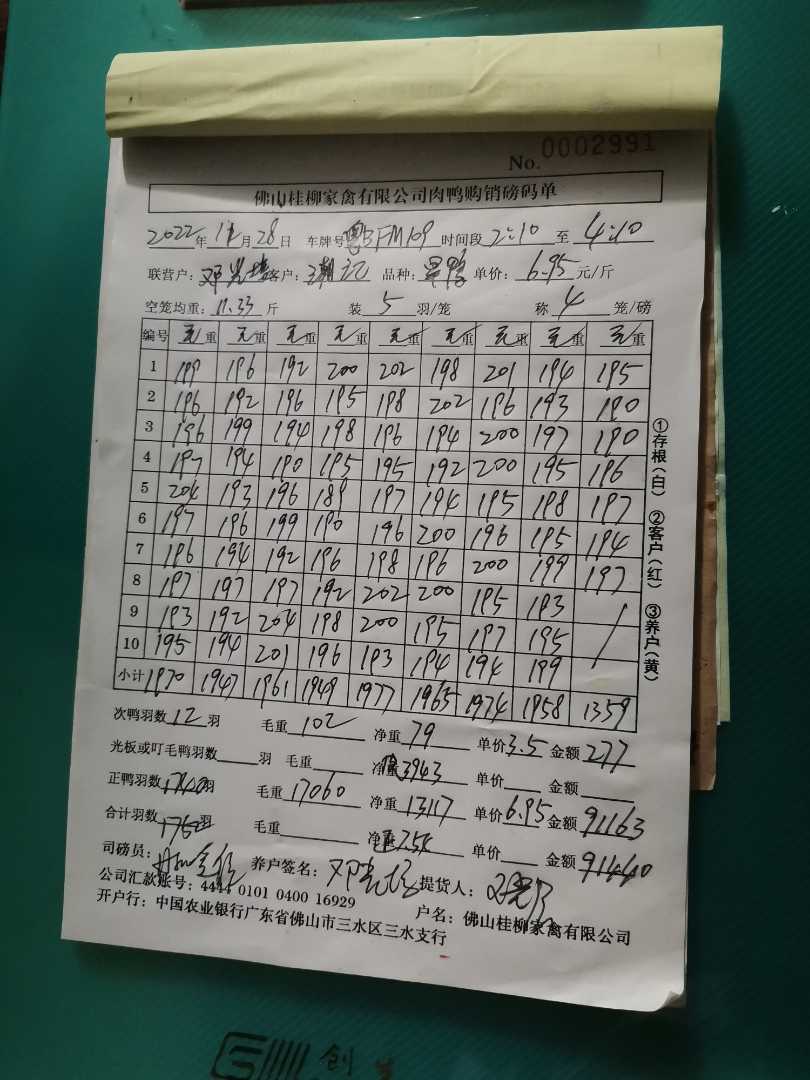 No. 0002991
佛山桂柳家禽有限公司肉鸭购销磅码单
2022年 11月28日 车牌号粤BFM109 时间段2:10 至 4:10
联营户: 邓 客户: 品种: 鸭 单价: 6.95 元/斤
空笼均重: 11.33 斤 装 5 羽/笼 称 4 笼/磅
编号 毛重 毛重 毛重 毛重 毛重 毛重 毛重 毛重 毛重
1 199 196 192 200 202 198 201 194 195
2 196 192 196 195 198 202 196 193 190
3 196 199 194 198 196 194 200 197 190
4 197 194 190 195 195 192 200 195 196
5 204 193 196 189 197 194 195 198 197
6 197 196 199 190 196 200 196 195 194
7 196 194 192 196 198 196 200 199 197
8 197 197 197 192 202 200 195 193
9 193 192 204 198 200 195 197 195
10 195 194 201 196 193 194 194 199
小计 1970 1947 1961 1949 1977 1965 1974 1958 1359
①存根(白) ②客户(红) ③养户(黄)
次鸭羽数 12 羽 毛重 102 净重 79 单价3.5 金额 277
光板或叮毛鸭羽数 羽 毛重 净重 3943 单价 金额
正鸭羽数 羽 毛重 17060 净重 13117 单价6.95 金额 91163
合计羽数 羽 毛重 净重 7.54 单价 金额 91440
司磅员: 养户签名: 邓 提货人:
公司汇款账号: 4444 0101 0400 16929 户名: 佛山桂柳家禽有限公司
开户行: 中国农业银行广东省佛山市三水区三水支行
创